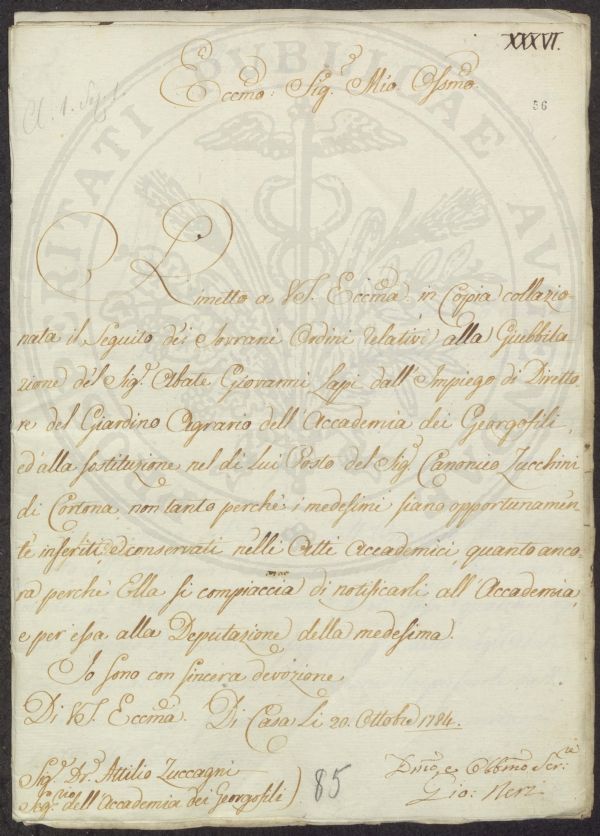 XXXVI.
Cl. 1. Sez. 1
56
Eccmo: Sigre Mio Ossmo.
Rimetto a VS. Eccma: in Copia collazio-
nata il Seguito dei Sovrani Ordini relativi alla Giubbila
zione del Sigre Abate Giovanni Lapi dall' Impiego di Diretto-
re del Giardino Agrario dell' Accademia dei Georgofili,
ed' alla sostituzione nel di lui Posto del Sigre Canonico Zucchini
di Cortona, non tanto perchè i medesimi siano opportunamen-
te inseriti, e conservati nelli Atti Accademici, quanto anco-
ra perchè Ella si compiaccia di notificarli all' Accademia,
e per essa alla Deputazione della medesima.
Io sono con sincera devozione
Di VS. Eccma. Di Casa Li 20. Ottobre 1784.
Sigre Dre. Attilio Zuccagni
Segrio dell' Accademia dei Georgofili)
85
Dmo, e Obbmo Serre:
Gio: Neri
PROSPERITATI PUBLICAE AUGENDAE